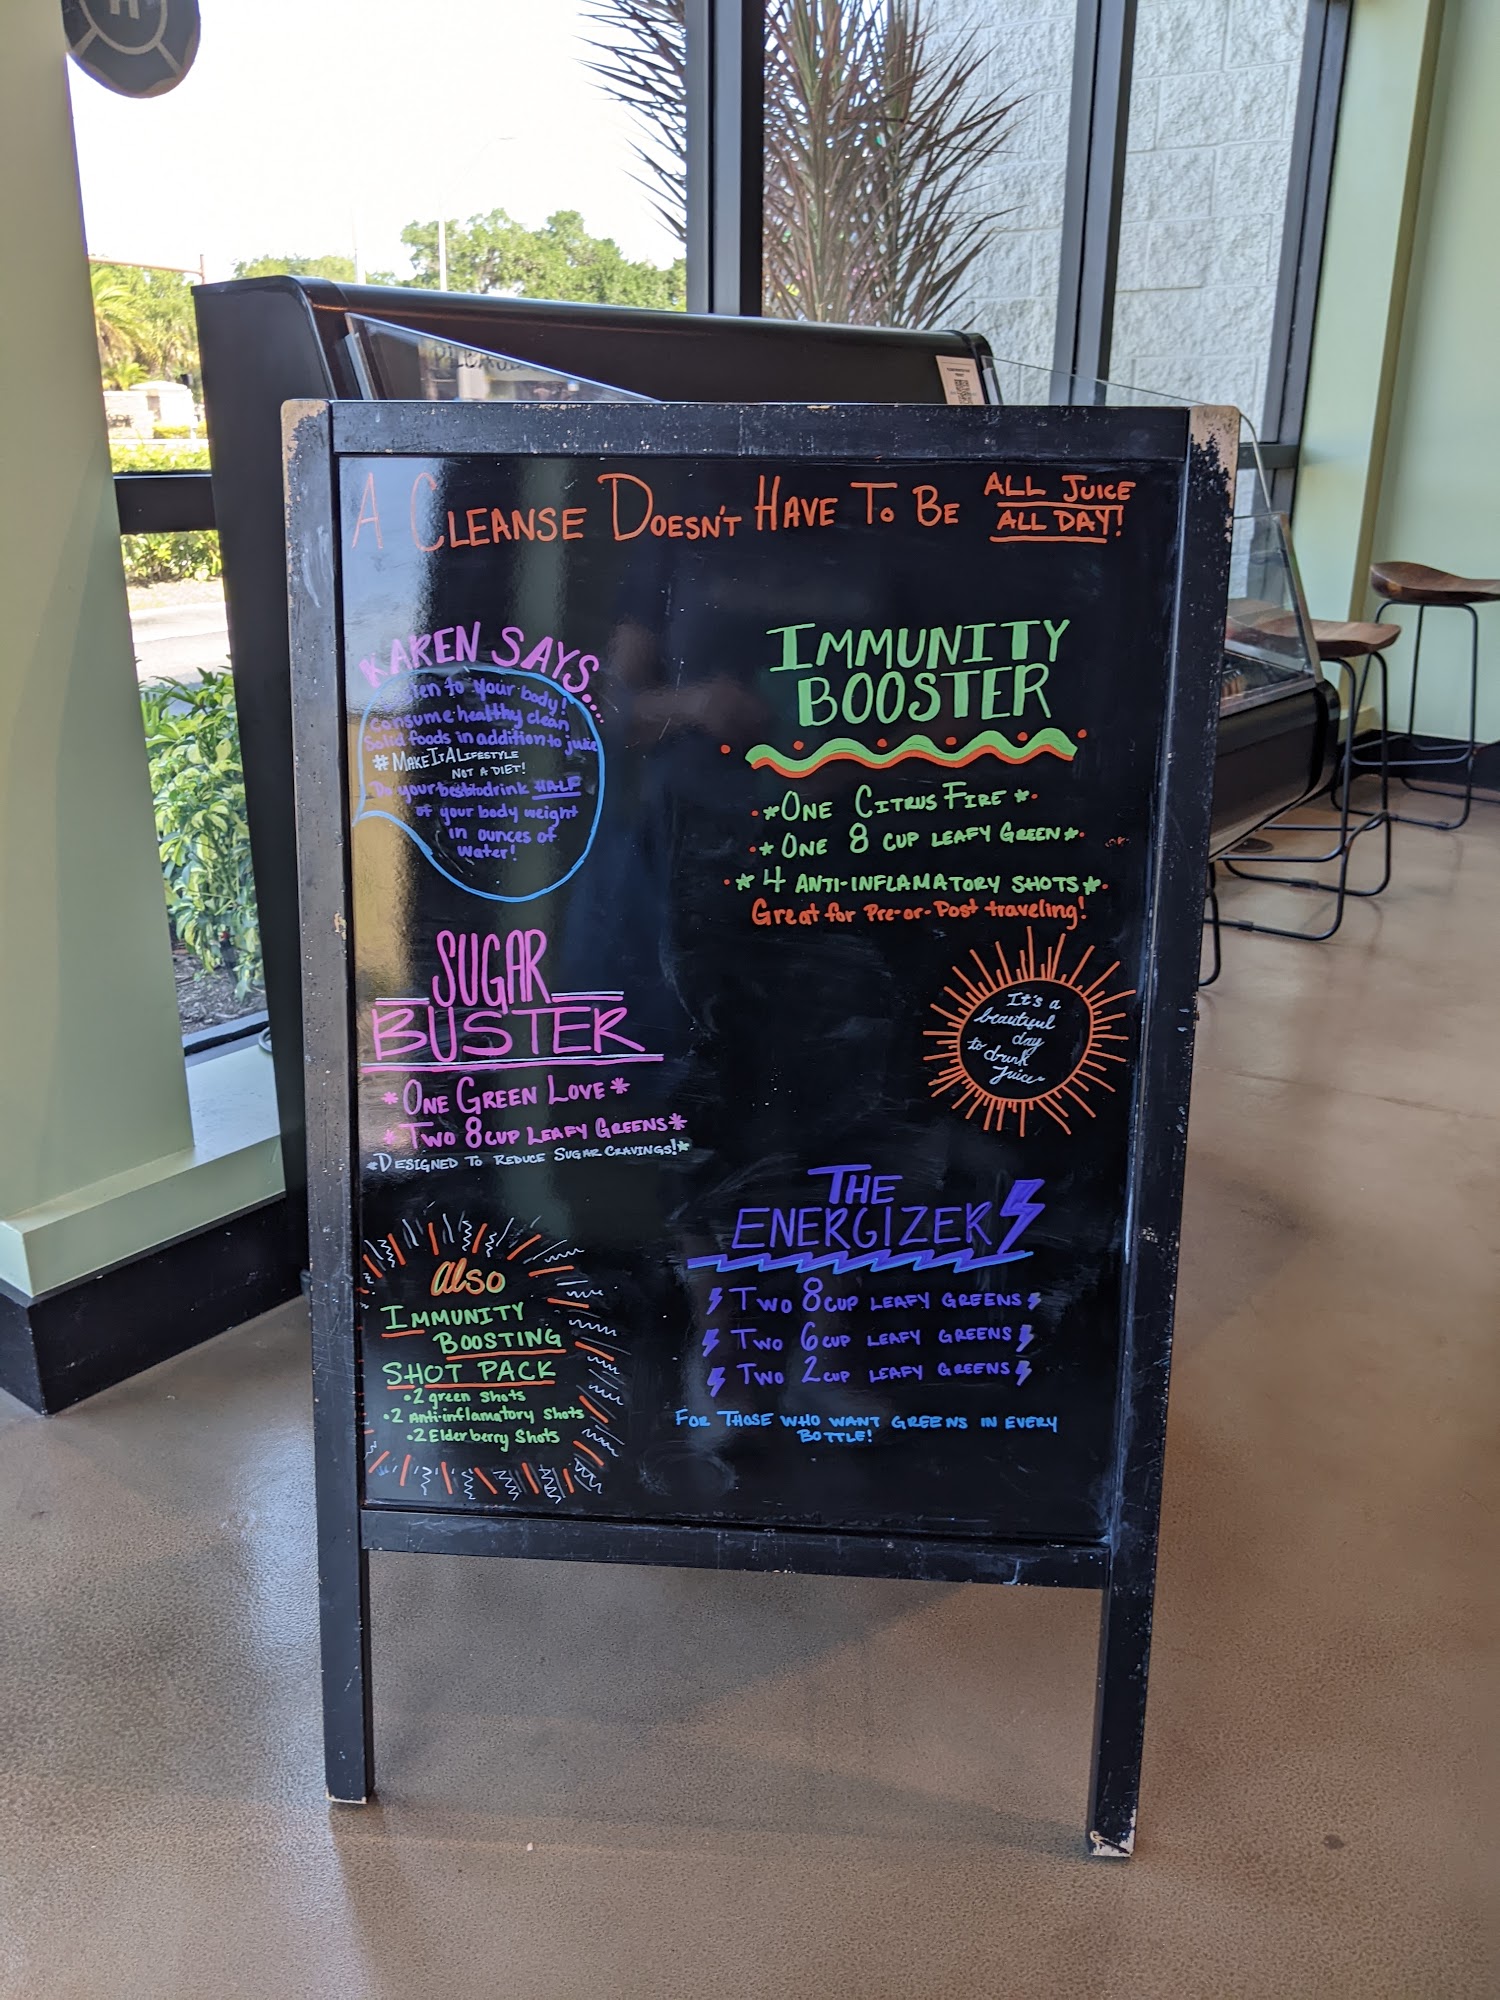 A CLEANSE DOESN'T HAVE TO BE ALL JUICE
ALL DAY!
KAREN SAYS....
Listen to your body!
Consume healthy clean
Solid foods in addition to juice
#MAKEITALIFESTYLE
NOT A DIET!
Do your best to drink HALF
of your body weight
in ounces of
water!
IMMUNITY
BOOSTER
*ONE CITRUS FIRE*
*ONE 8 CUP LEAFY GREEN*
*4 ANTI-INFLAMATORY SHOTS*
Great for Pre-or-Post traveling!
SUGAR
BUSTER
*ONE GREEN LOVE*
*TWO 8CUP LEAFY GREENS*
*DESIGNED TO REDUCE SUGAR CRAVINGS!*
It's a
beautiful
day
to drink
Juice~
also
IMMUNITY
BOOSTING
SHOT PACK
•2 green shots
•2 Anti-inflamatory shots
•2 Elderberry Shots
THE
ENERGIZER
TWO 8CUP LEAFY GREENS
TWO 6CUP LEAFY GREENS
TWO 2CUP LEAFY GREENS
FOR THOSE WHO WANT GREENS IN EVERY
BOTTLE!